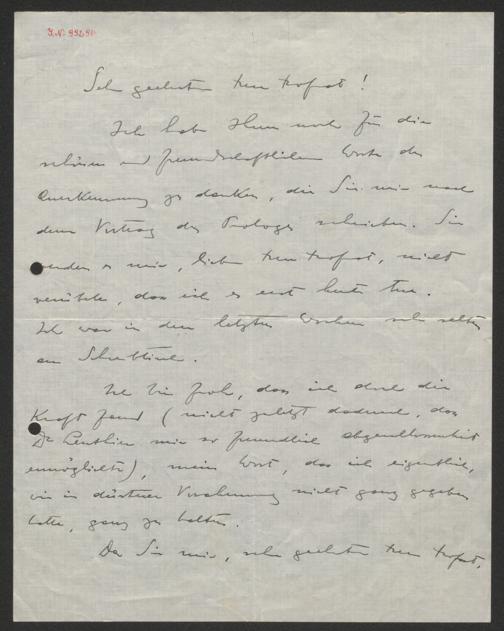 Sehr geehrter Herr Hofrat!
Ich habe Ihnen noch für die
schönen und freundschaftlichen Worte der
Anerkennung zu danken, die Sie mir nach
dem Vortrag des Prologs schrieben. Sie
werden es mir, lieber Herr Hofrat, nicht
verübeln, dass ich es erst heute tue.
Ich war in den letzten Wochen sehr selten
am Schreibtisch.
Ich bin froh, dass ich doch die
Kraft fand (nicht zuletzt dadurch, dass
Dr. mir so freundlich
ermöglichte), mein Wort, das ich eigentlich,
wie in düsterer Vorahnung nicht ganz gegeben
hatte, ganz zu halten.
Da Sie mir, sehr geehrter Herr Hofrat,